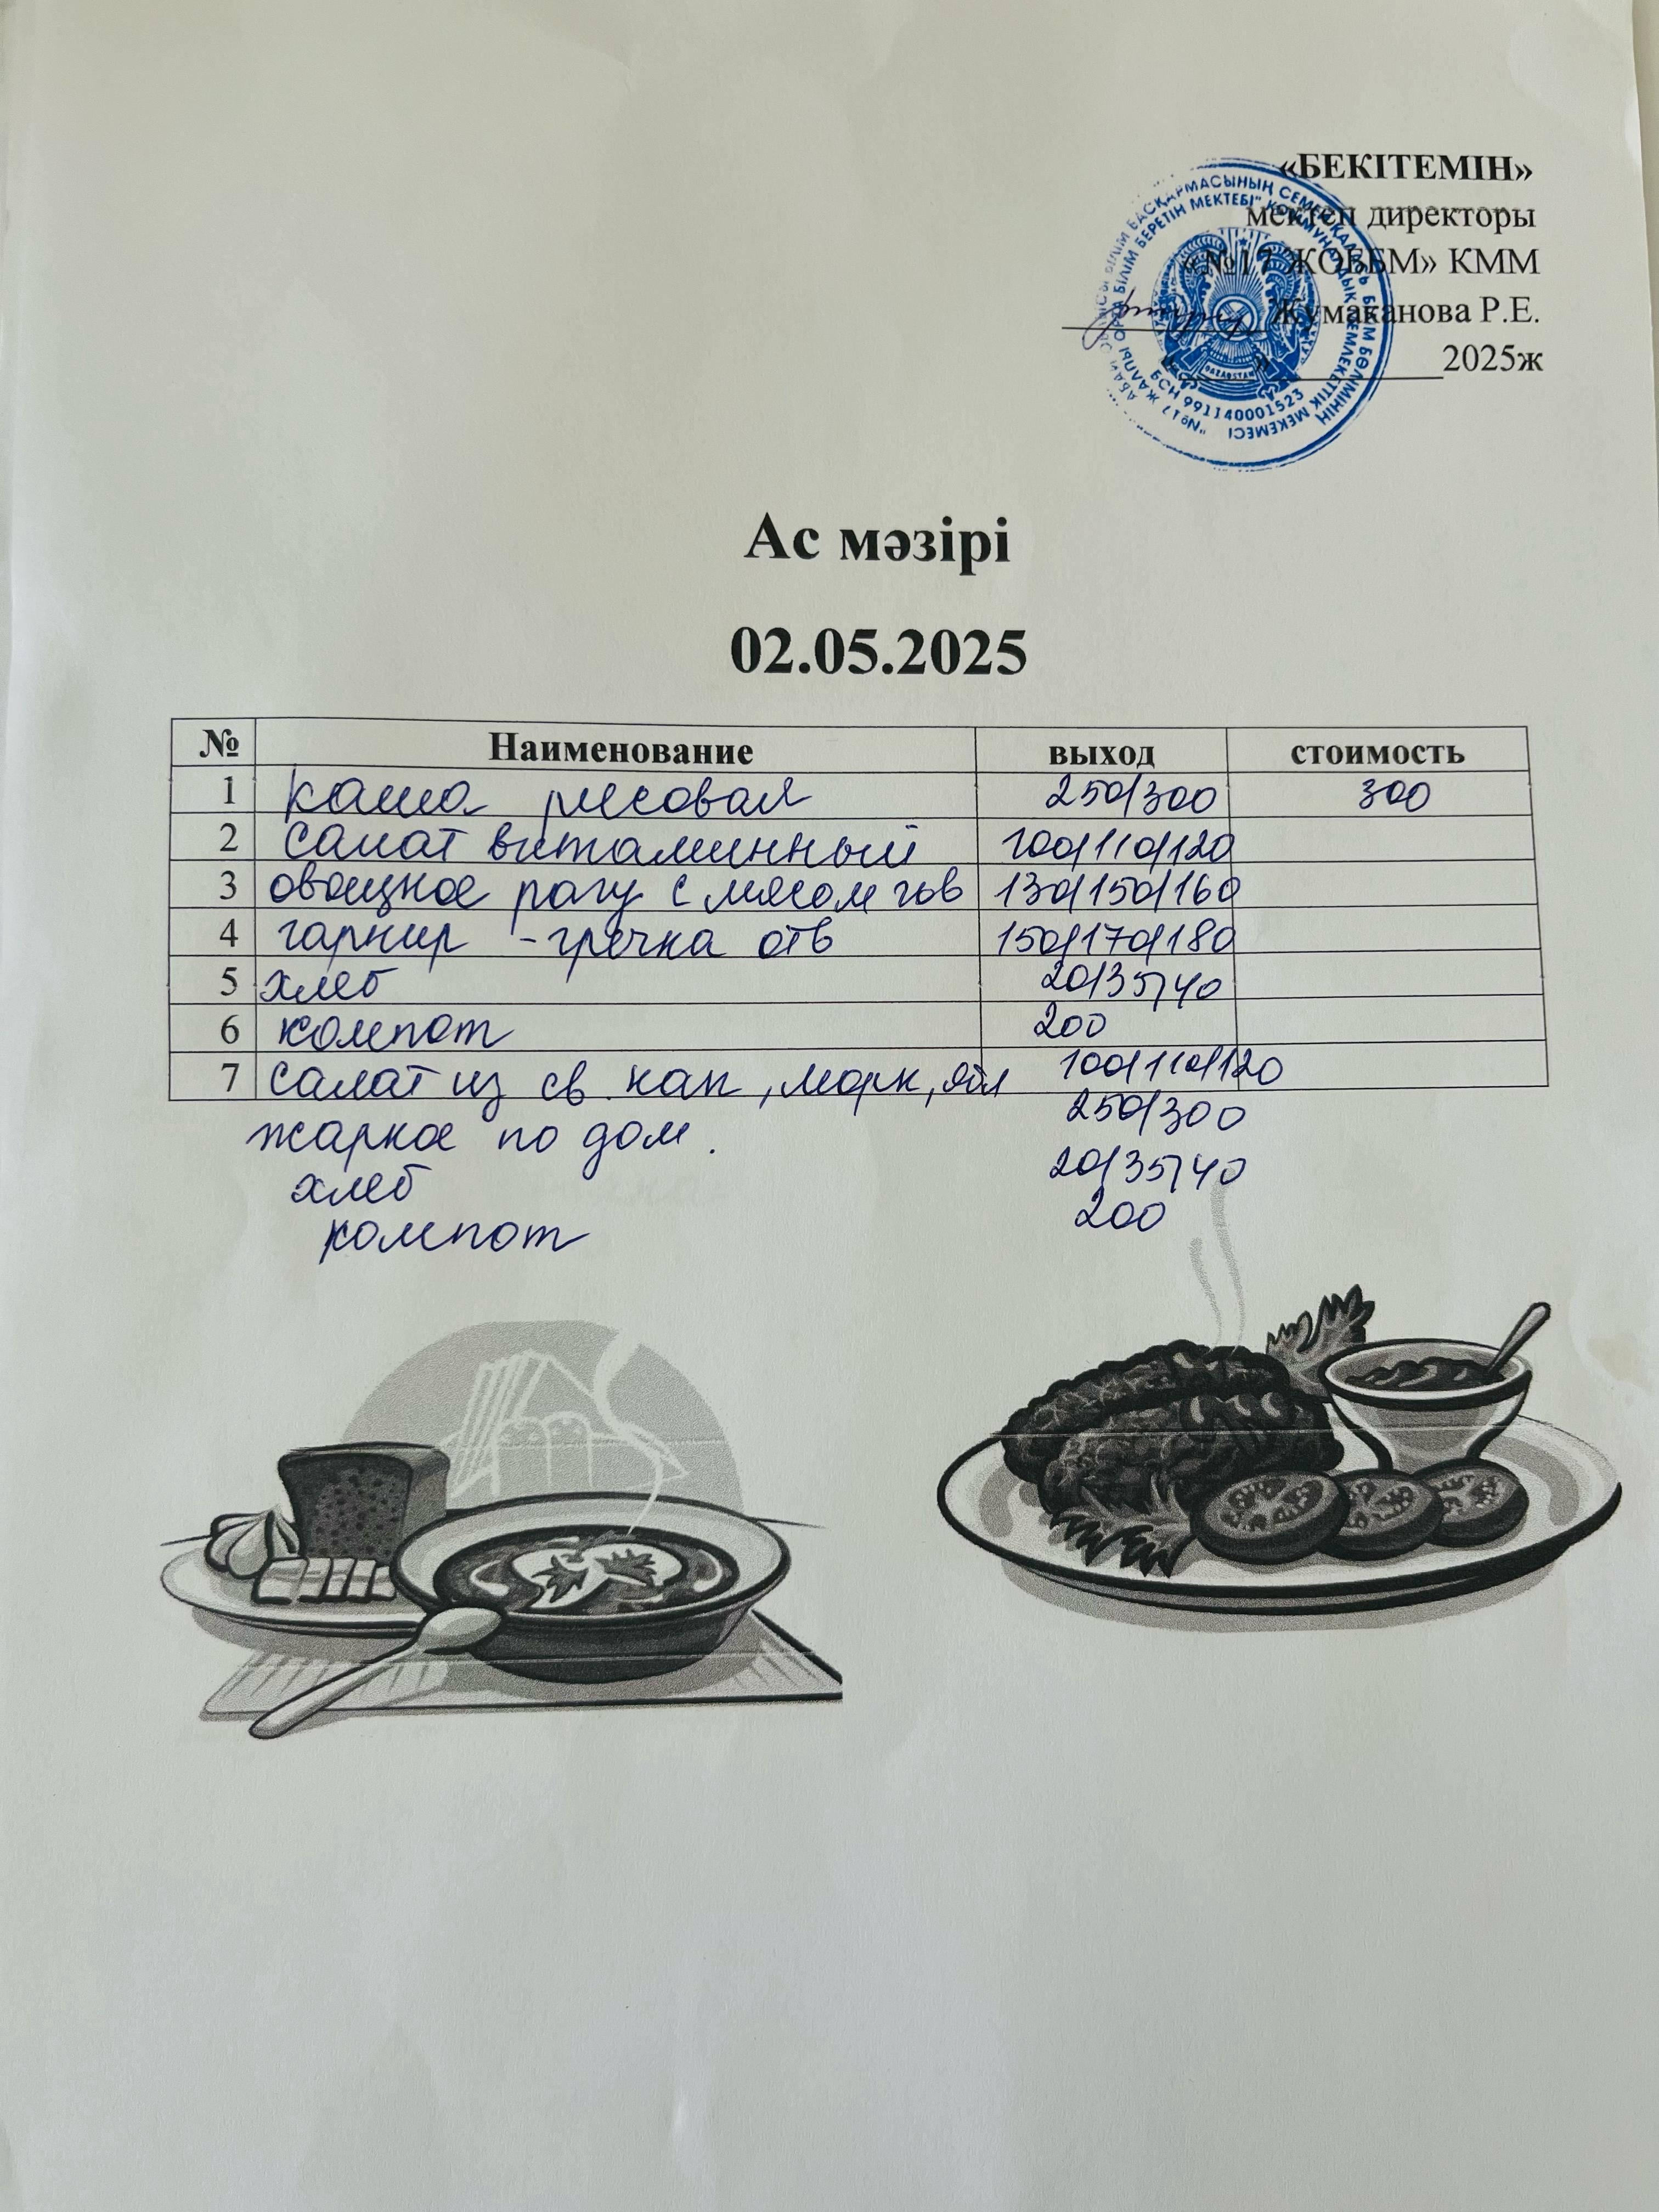 «БЕКІТЕМІН»
мектеп директоры
«№17 ЖОББМ» КММ
Жумаканова Р.Е.
2025ж
БАСҚАРМАСЫНЫҢ СЕМЕЙ ҚАЛАСЫ БІЛІМ БӨЛІМІНІҢ
"№17 ЖАЛПЫ ОРТА БІЛІМ БЕРЕТІН МЕКТЕБІ" КОММУНАЛДЫҚ МЕМЛЕКЕТТІК МЕКЕМЕСІ
БСН 991140001523
QAZAQSTAN
Ас мәзірі
02.05.2025
№ Наименование выход стоимость
1 каша рисовая 250/300 300
2 салат витаминный 100/110/120
3 овощное рагу с мясом гов 130/150/160
4 гарнир - гречка отв 150/170/180
5 хлеб 20/35/40
6 компот 200
7 салат из св. кап, морк, ябл 100/110/120
жаркое по дом. 250/300
хлеб 20/35/40
компот 200